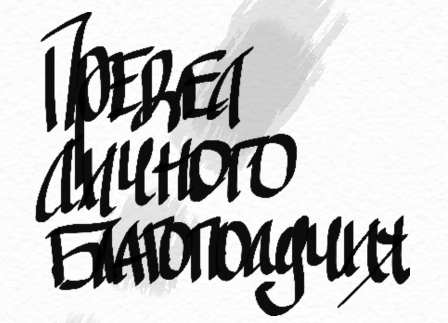 Предел
личного
Благополучия